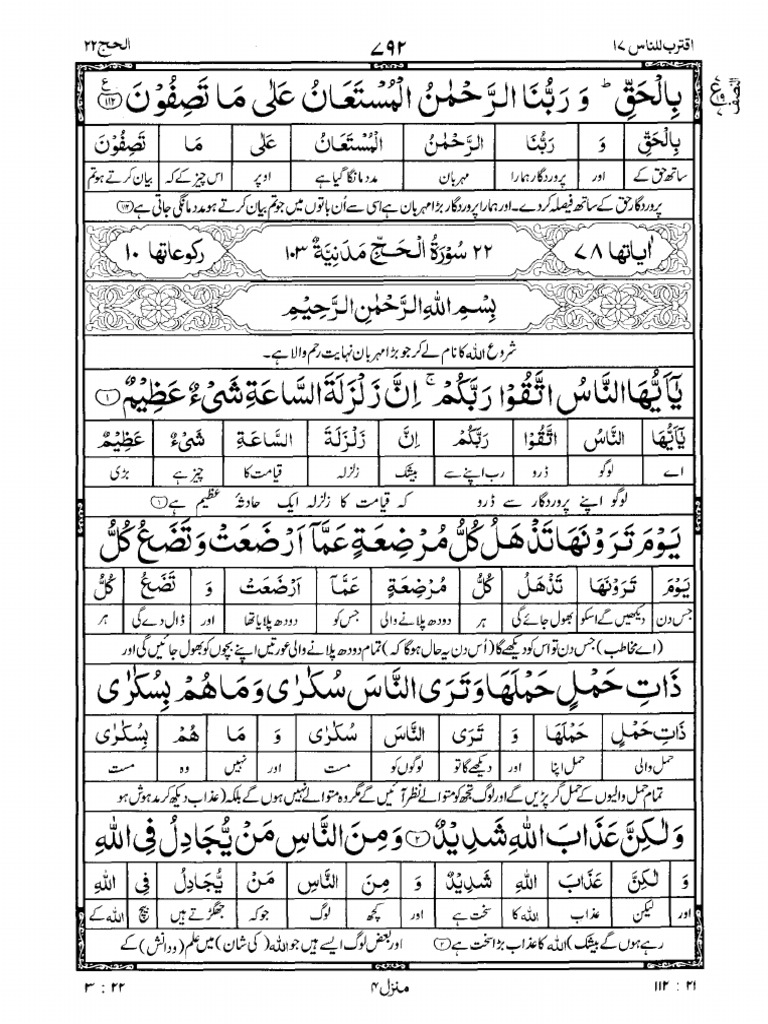 اقترب للناس ١٧ ٧٩٢ الحج ٢٢
بِالْحَقِّ ؕ وَ رَبُّنَا الرَّحْمٰنُ الْمُسْتَعَانُ عَلٰی مَا تَصِفُوْنَ ﴿۱۱۲﴾
النصف
بِالْحَقِّ وَ رَبُّنَا الرَّحْمٰنُ الْمُسْتَعَانُ عَلٰی مَا تَصِفُوْنَ
ساتھ حق کے اور پروردگار ہمارا مہربان مدد مانگا گیا ہے اوپر اس چیز کے کہ بیان کرتے ہو تم
پروردگار حق کے ساتھ فیصلہ کردے۔ اور ہمارا پروردگار بڑا مہربان ہے اسی سے اُن باتوں میں جو تم بیان کرتے ہو مدد مانگی جاتی ہے ﴿۱۱۲﴾
اٰیاتها ٧٨ ٢٢ سُوْرَةُ الْحَجِّ مَدَنِيَّةٌ ١٠٣ رکوعاتها ١٠
بِسْمِ اللهِ الرَّحْمٰنِ الرَّحِيْمِ
شروع اللہ کا نام لے کر جو بڑا مہربان نہایت رحم والا ہے۔
یٰۤاَیُّهَا النَّاسُ اتَّقُوْا رَبَّكُمْ ۚ اِنَّ زَلْزَلَةَ السَّاعَةِ شَیْءٌ عَظِیْمٌ ﴿۱﴾
یٰۤاَیُّهَا النَّاسُ اتَّقُوْا رَبَّكُمْ اِنَّ زَلْزَلَةَ السَّاعَةِ شَیْءٌ عَظِیْمٌ
اے لوگو ڈرو رب اپنے سے بیشک زلزلہ قیامت کا چیز ہے بڑی
لوگو اپنے پروردگار سے ڈرو کہ قیامت کا زلزلہ ایک حادثۂ عظیم ہے ﴿۱﴾
یَوْمَ تَرَوْنَهَا تَذْهَلُ كُلُّ مُرْضِعَةٍ عَمَّاۤ اَرْضَعَتْ وَ تَضَعُ كُلُّ
یَوْمَ تَرَوْنَهَا تَذْهَلُ كُلُّ مُرْضِعَةٍ عَمَّاۤ اَرْضَعَتْ وَ تَضَعُ كُلُّ
جس دن دیکھیں گے اسکو بھول جائے گی ہر دودھ پلانے والی جس کو دودھ پلایا تھا اور ڈال دے گی ہر
(اے مخاطب) جس دن تو اس کو دیکھے گا (اُس دن یہ حال ہوگا کہ) تمام دودھ پلانے والی عورتیں اپنے بچوں کو بھول جائیں گی اور
ذَاتِ حَمْلٍ حَمْلَهَا وَ تَرَی النَّاسَ سُكٰرٰی وَ مَا هُمْ بِسُكٰرٰی
ذَاتِ حَمْلٍ حَمْلَهَا وَ تَرَی النَّاسَ سُكٰرٰی وَ مَا هُمْ بِسُكٰرٰی
حمل والی حمل اپنا اور دیکھے گا تو لوگوں کو مست اور نہیں وہ مست
تمام حمل والیوں کے حمل گر پڑیں گے اور لوگ تجھ کو متوالے نظر آئیں گے مگر وہ متوالے نہیں ہوں گے بلکہ (عذاب دیکھ کر مدہوش ہو
وَ لٰكِنَّ عَذَابَ اللهِ شَدِیْدٌ ﴿۲﴾ وَ مِنَ النَّاسِ مَنْ یُّجَادِلُ فِی اللهِ
وَ لٰكِنَّ عَذَابَ اللهِ شَدِیْدٌ وَ مِنَ النَّاسِ مَنْ یُّجَادِلُ فِی اللهِ
اور لیکن عذاب اللہ کا سخت ہے اور کچھ لوگ جو کہ جھگڑتے ہیں بیچ اللہ کے
رہے ہوں گے بیشک) اللہ کا عذاب بڑا سخت ہے ﴿۲﴾ اور بعض لوگ ایسے ہیں جو اللہ (کی شان) میں علم (ودانش) کے
٢١ : ١١٢ منزل ۴ ٢٢ : ٣